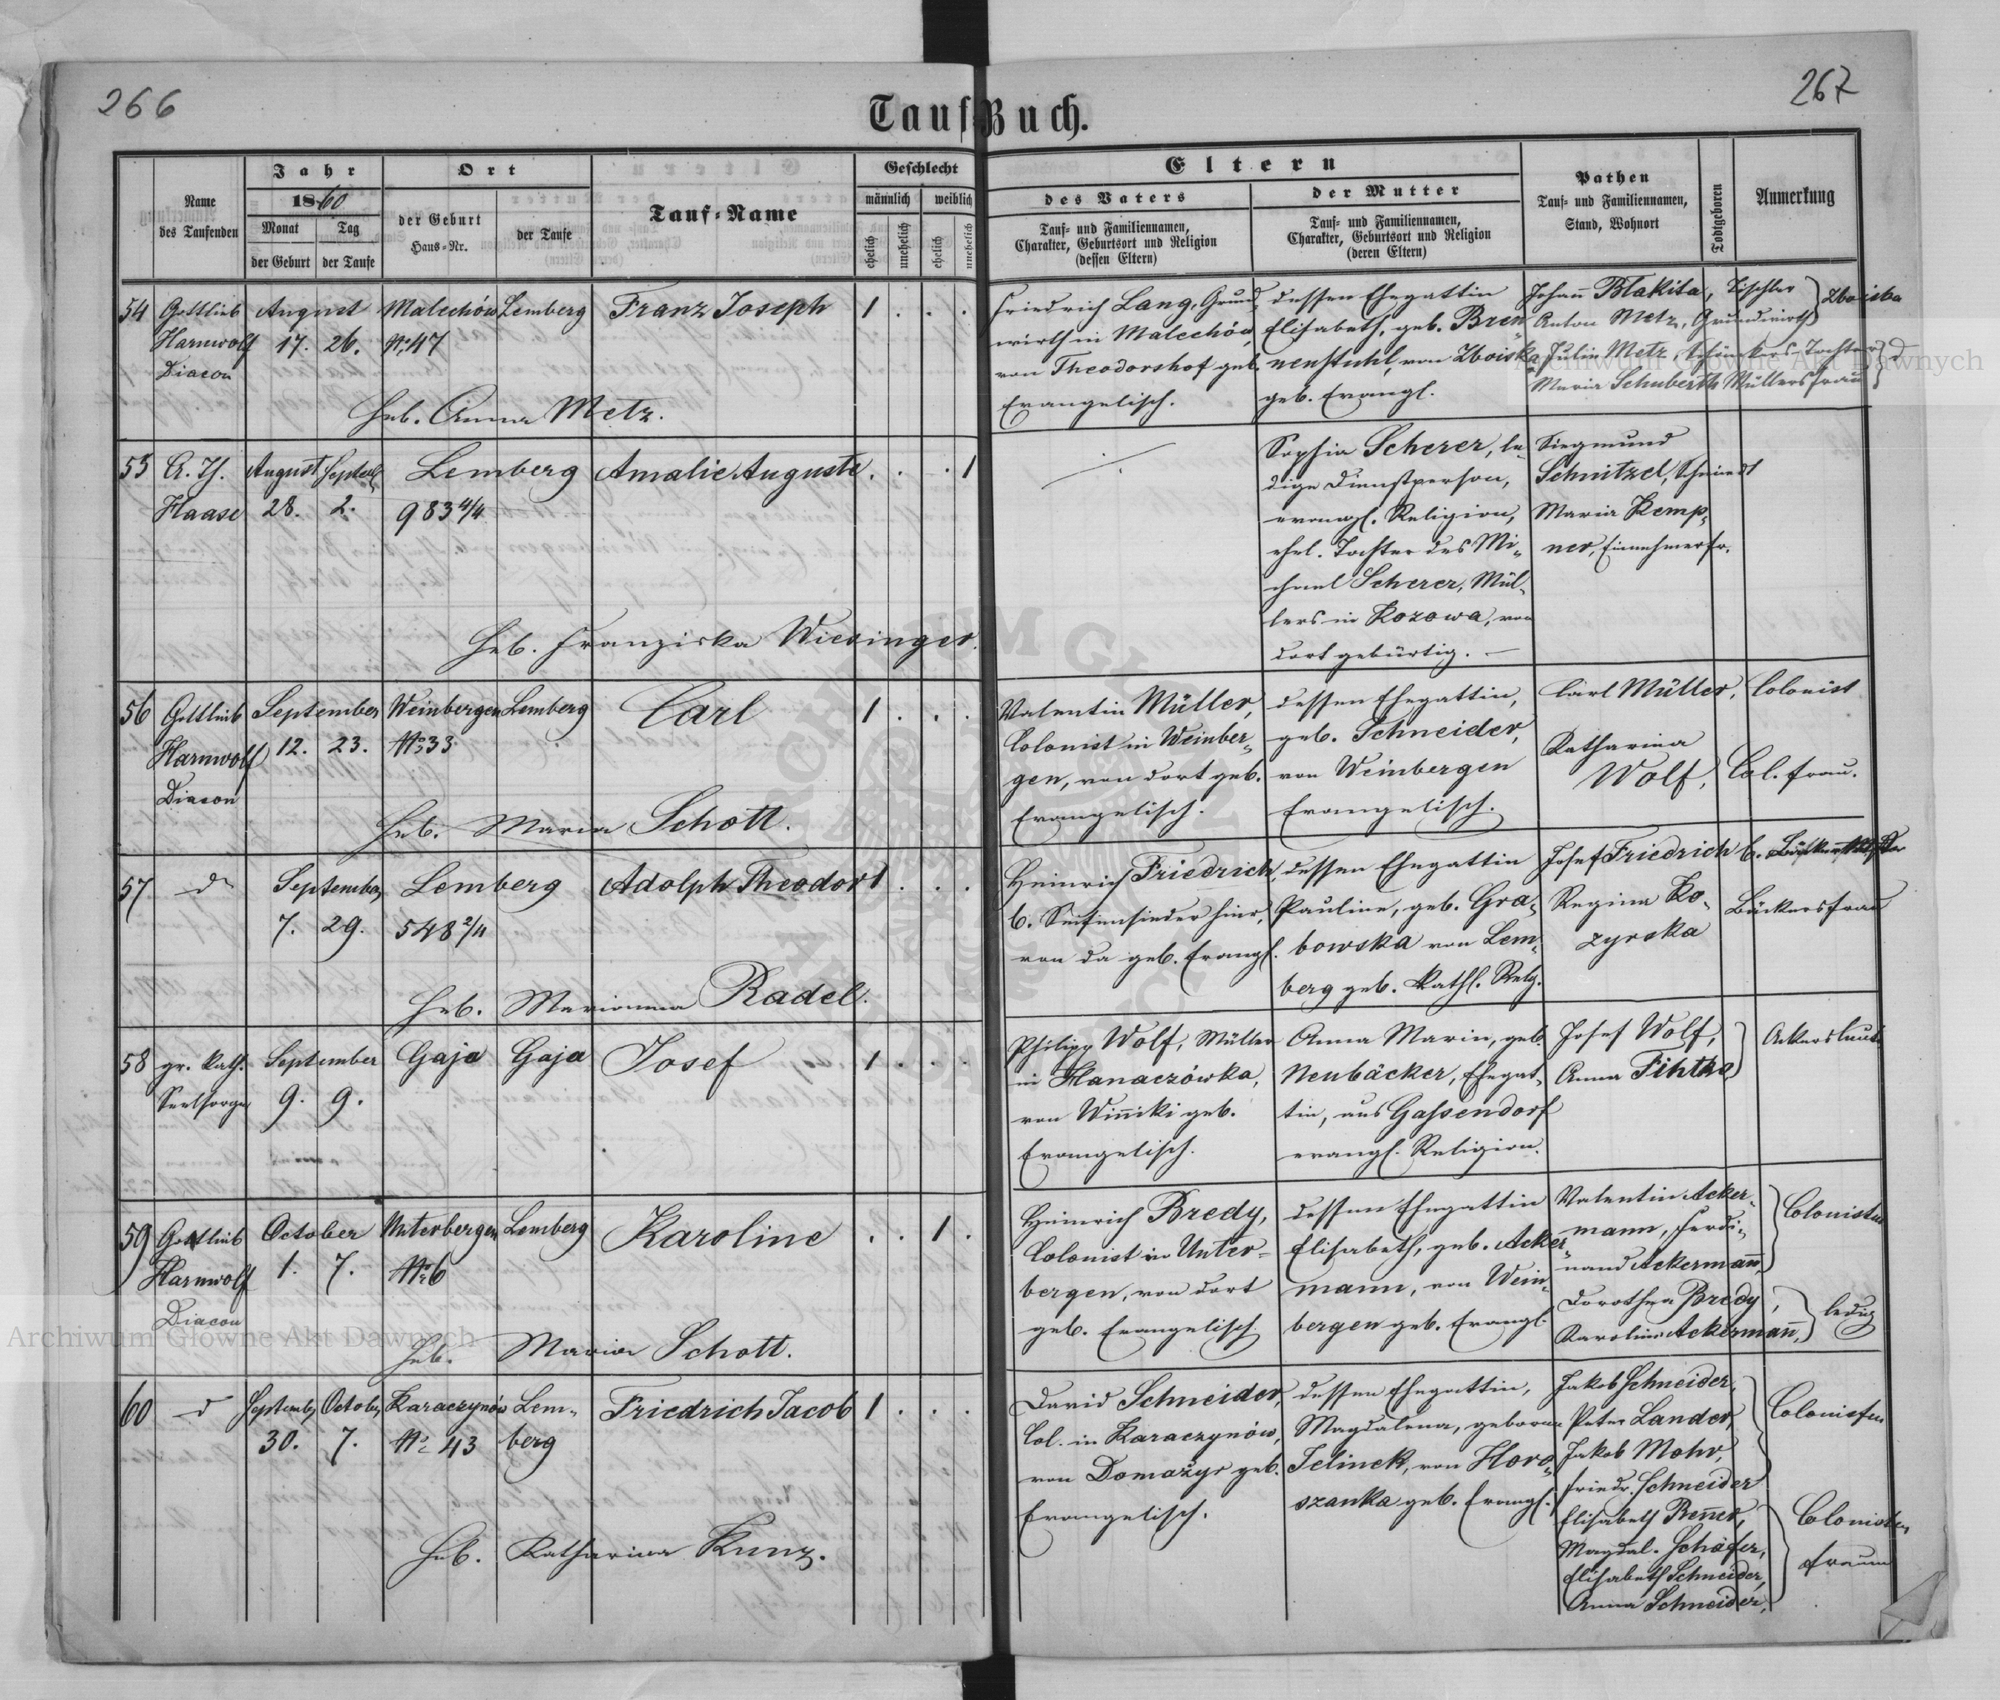 266
267
Tauf-Buch.
Name des Taufenden
Jahr
1860
Monat der Geburt
Tag der Taufe
Ort
der Geburt Haus-Nr.
der Taufe
Tauf-Name
Geschlecht
männlich
weiblich
ehelich
unehelich
ehelich
unehelich
Eltern
des Vaters
Tauf- und Familiennamen,
Charakter, Geburtsort und Religion
(dessen Eltern)
der Mutter
Tauf- und Familiennamen,
Charakter, Geburtsort und Religion
(deren Eltern)
Pathen
Tauf- und Familiennamen,
Stand, Wohnort
Todtgeboren
Anmerkung
54
Gottlieb
Harnwolf
Diacon
August
17. 26.
Malechów
No 47
Lemberg
Franz Joseph
1 . . .
Heb. Anna Metz.
Friedrich Lang, Grund-
wirth in Malechów,
von Theodorshof geb.
Evangelisch.
dessen Ehegattin
Elisabeth, geb. Bren-
nenstuhl, von Zboiska
geb. Evangl.
Johañ Blakita, Tischler
Anton Metz, Grundwirth
Zboiska
Julia Metz, Tochter
Maria Schuberth Müllersfrau
55
Haase
August
28.
Septemb.
2.
Lemberg
983 4/4
Amalie Auguste
. . . 1
Heb. Franziska Wiesinger.
Sophia Scherer, le-
dige Dienstperson,
evangl. Religion,
ehel. Tochter des Mi-
chael Scherer, Mül-
lers in Kozowa, von
dort gebürtig. —
Siegmund
Schnitzel, Schmiedt
Maria Kemp-
ner, Einnehmersfr.
56
Gottlieb
Harnwolf
Diacon
September
12. 23.
Weinbergen
No 33
Lemberg
Carl
1 . . .
Heb. Maria Schott.
Valentin Müller,
Colonist in Weinber-
gen, von dort geb.
Evangelisch.
dessen Ehegattin,
geb. Schneider,
von Weinbergen
Evangelisch.
Carl Müller, Colonist
Katharina
Wolf, Col. frau.
57
do
September
7. 29.
Lemberg
548 2/4
Adolph Theodor
1 . . .
Heb. Marianna Radel.
Heinrich Friedrich,
b. Seifensieder hier,
von da geb. Evangl.
dessen Ehegattin
Pauline, geb. Gra-
bowska von Lem-
berg geb. Kathl. Relg.
Josef Friedrich
Regina Ko-
zyrska
Bäckersfrau
58
gr. kath.
Seelsorger
September
9. 9.
Gaja
Gaja
Josef
1 . . .
Philipp Wolf, Müller
in Hanaczówka,
von Wiñiki geb.
Evangelisch.
Anna Maria, geb.
Neubäcker, Ehegat-
tin, aus Gassendorf
evangl. Religion.
Josef Wolf,
Anna Fihtka
Ackersleute
59
Gottlieb
Harnwolf
Diacon
October
1. 7.
Unterbergen
No 6
Lemberg
Karoline
. . 1 .
Heb. Maria Schott.
Heinrich Bredy,
Colonist in Unter-
bergen, von dort
geb. Evangelisch.
dessen Ehegattin
Elisabeth, geb. Acker-
mann, von Wein-
bergen geb. Evangl.
Valentin Acker-
mann, Ferdi-
nand Ackermañ,
Colonisten
Dorothea Bredy,
Karolina Ackermañ,
ledig
60
do
Septemb.
30.
October
7.
Karaczynów
No 43
Lem-
berg
Friedrich Jacob
1 . . .
Heb. Katharina Kunz.
David Schneider,
Col. in Karaczynów,
von Domażyr geb.
Evangelisch.
dessen Ehegattin,
Magdalena, geborne
Jelinek, von Horo-
szanka geb. Evangl.
Jakob Schneider,
Peter Lander,
Jakob Mohr,
Friedr. Schneider
Colonisten
Elisabeth Reñer,
Magdal. Schäfer,
Elisabeth Schneider,
Anna Schneider,
Colonisten
frauen
Archiwum Główne Akt Dawnych
Archiwum Główne Akt Dawnych